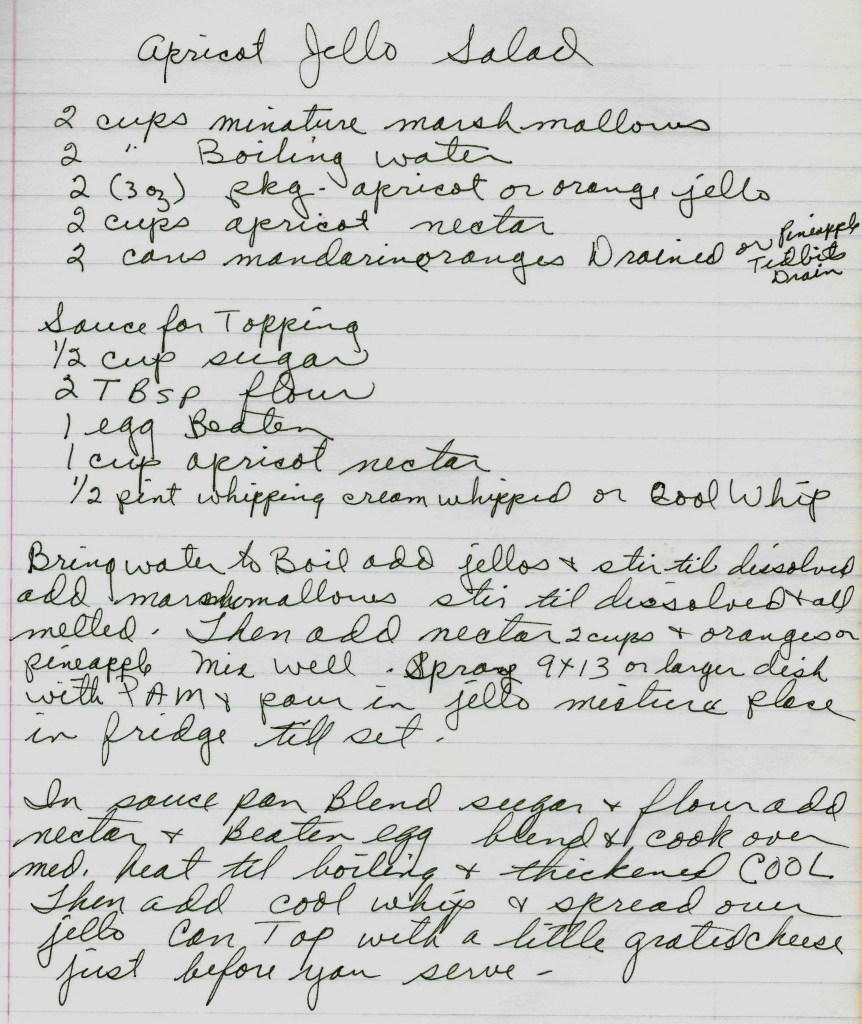 Apricot Jello Salad
2 cups minature marshmallows
2 " Boiling water
2 (3 oz) pkg. apricot or orange jello
2 cups apricot nectar
2 cans mandarin oranges Drained or Pineapple
Tidbits
Drain
Sauce for Topping
1/2 cup sugar
2 TBSP flour
1 egg Beaten
1 cup apricot nectar
1/2 pint whipping cream whipped or Cool Whip
Bring water to Boil add jellos & stir til dissolved
add marshmallows stir til dissolved & all
melted. Then add nectar 2 cups & oranges or
pineapple Mix well. Spray 9x13 or larger dish
with PAM & pour in jello mixture place
in fridge till set.
In sauce pan Blend sugar & flour add
nectar & Beaten egg blend & cook over
med. heat til boiling & thickened COOL
Then add cool whip & spread over
jello Can Top with a little grated cheese
just before you serve -